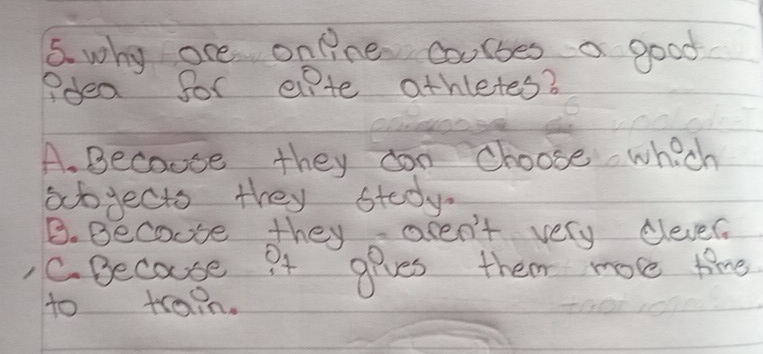 5. Why are online courses a good
idea for elite athletes?
A. Because they can choose which
subjects they study.
B. Because they aren't very clever.
C. Because it gives them more time
to train.